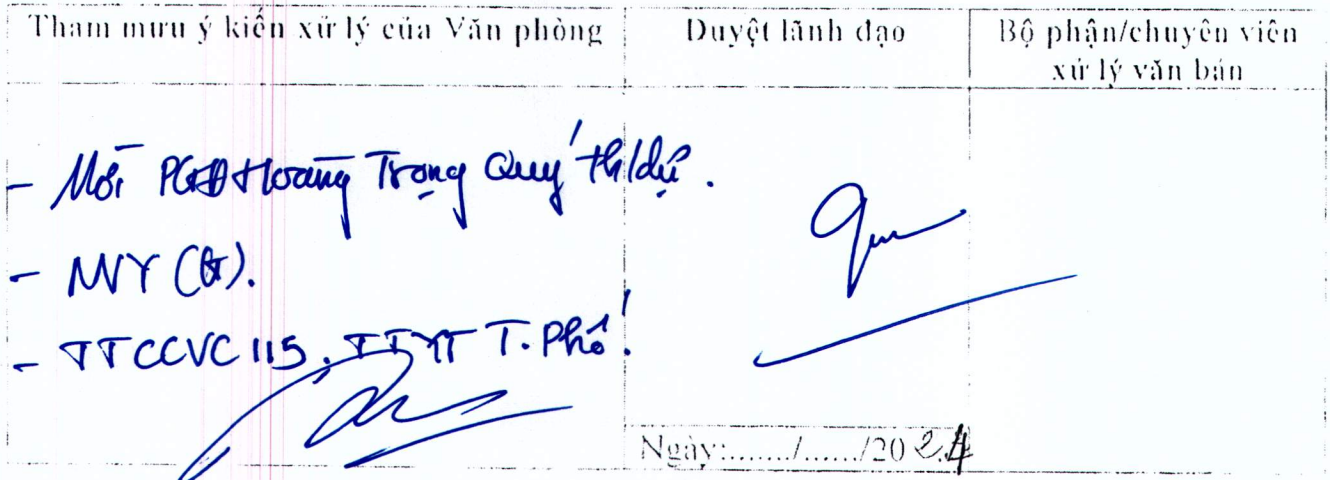 Tham mưu ý kiến xử lý của Văn phòng
Duyệt lãnh đạo
Bộ phận/chuyên viên
xử lý văn bản
- Mời PGĐ Hoàng Trọng Quý th/dự.
- NVY
- TTCCVC 115, TTYT T. Phố.
Ngày:....../....../2024